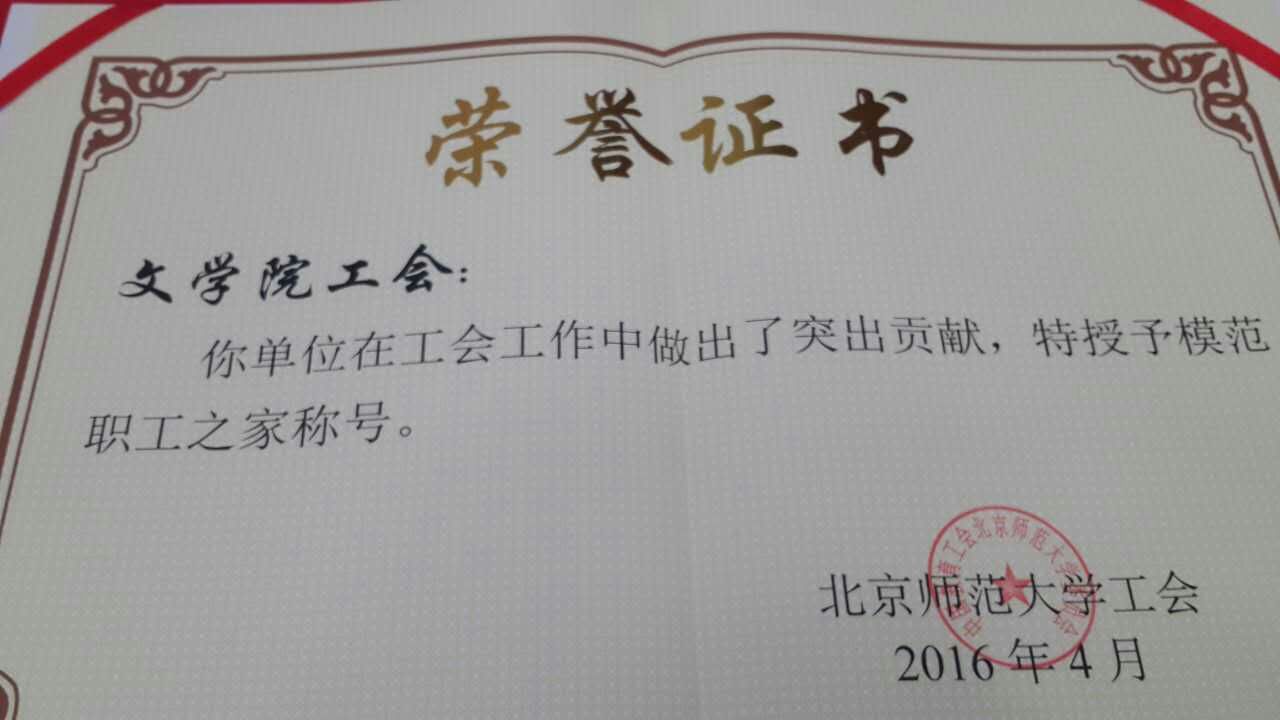 荣誉证书
文学院工会：
你单位在工会工作中做出了突出贡献，特授予模范
职工之家称号。
北京师范大学工会
2016年4月